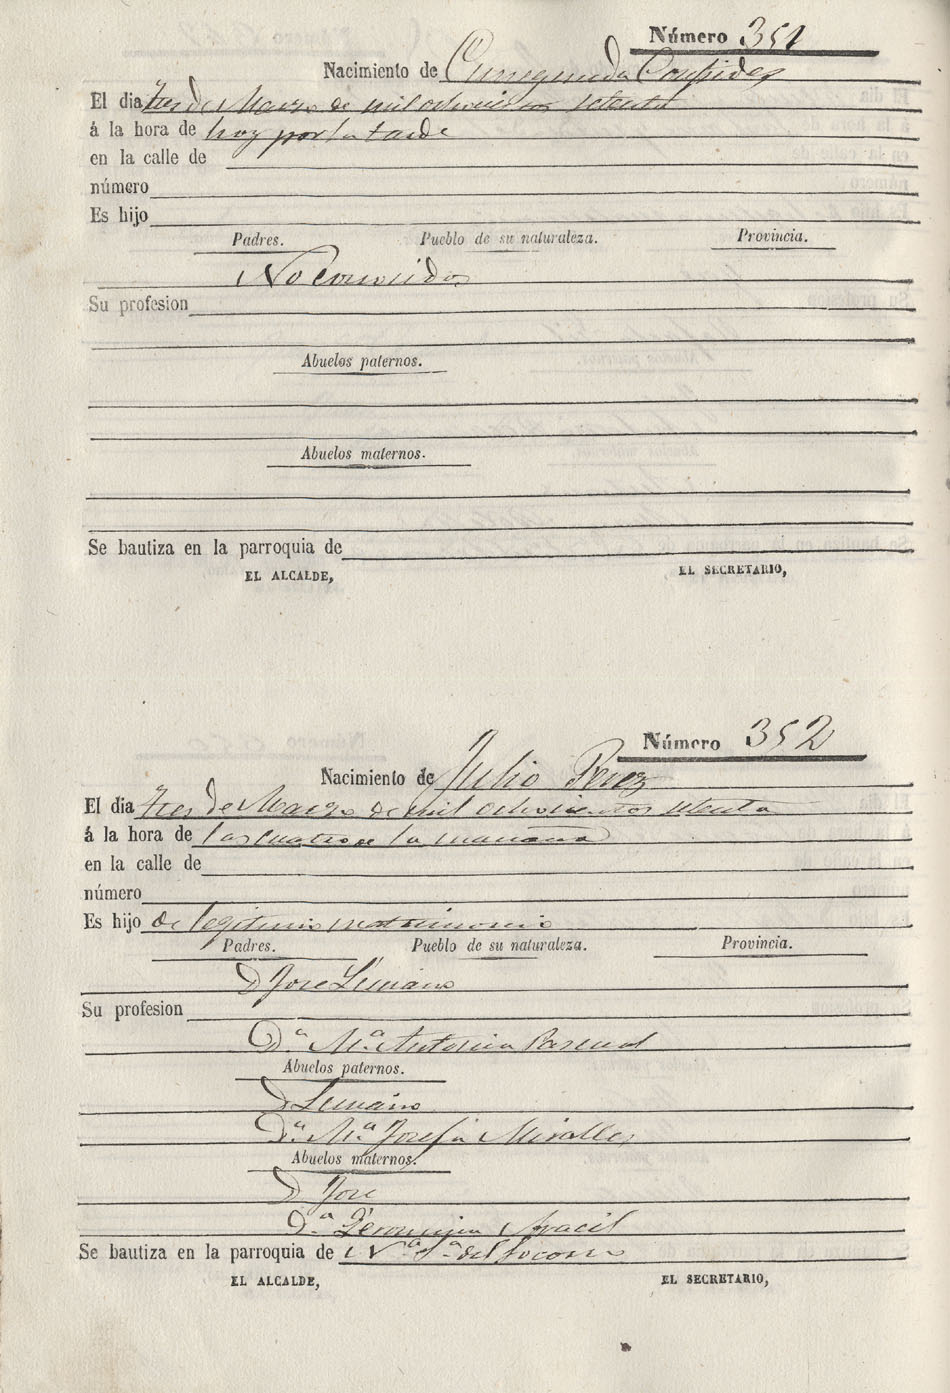 Número 351
Nacimiento de Cunegunda Confides
El dia tres de Marzo de mil ochocientos setenta
á la hora de hoy por la tarde
en la calle de
número
Es hijo
Padres. Pueblo de su naturaleza. Provincia.
No conocidos
Su profesion
Abuelos paternos.
Abuelos maternos.
Se bautiza en la parroquia de
EL ALCALDE, EL SECRETARIO,
Número 352
Nacimiento de Julio Perez
El dia tres de Marzo de mil ochocientos setenta
á la hora de las cuatro de la mañana
en la calle de
número
Es hijo de legitimo matrimonio
Padres. Pueblo de su naturaleza. Provincia.
D Jose
Su profesion
D.ª M.ª Antonia Pascual
Abuelos paternos.
D
D.ª M.ª Josefa Miralles
Abuelos maternos.
D Jose
D.ª Geronima Aracil
Se bautiza en la parroquia de N.ª S.ª del Socorro
EL ALCALDE, EL SECRETARIO,